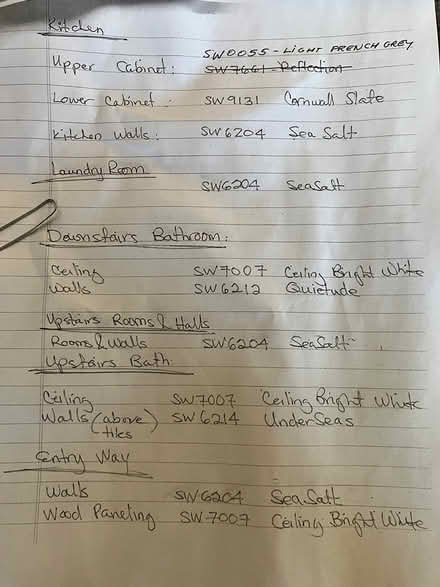 Kitchen
SW0055 - LIGHT FRENCH GREY
Upper Cabinet: SW7661 - Reflection
Lower Cabinet: SW9131 Cornwall Slate
Kitchen Walls: SW6204 Sea Salt
Laundry Room
SW6204 SeaSalt
Downstairs Bathroom:
Ceiling SW7007 Ceiling Bright White
Walls SW6212 Quietude
Upstairs Rooms & Halls
Rooms & Walls SW6204 SeaSalt
Upstairs Bath:
Ceiling SW7007 Ceiling Bright White
Walls (above tiles) SW6214 UnderSeas
Entry Way
Walls SW6204 SeaSalt
Wood Paneling SW7007 Ceiling Bright White